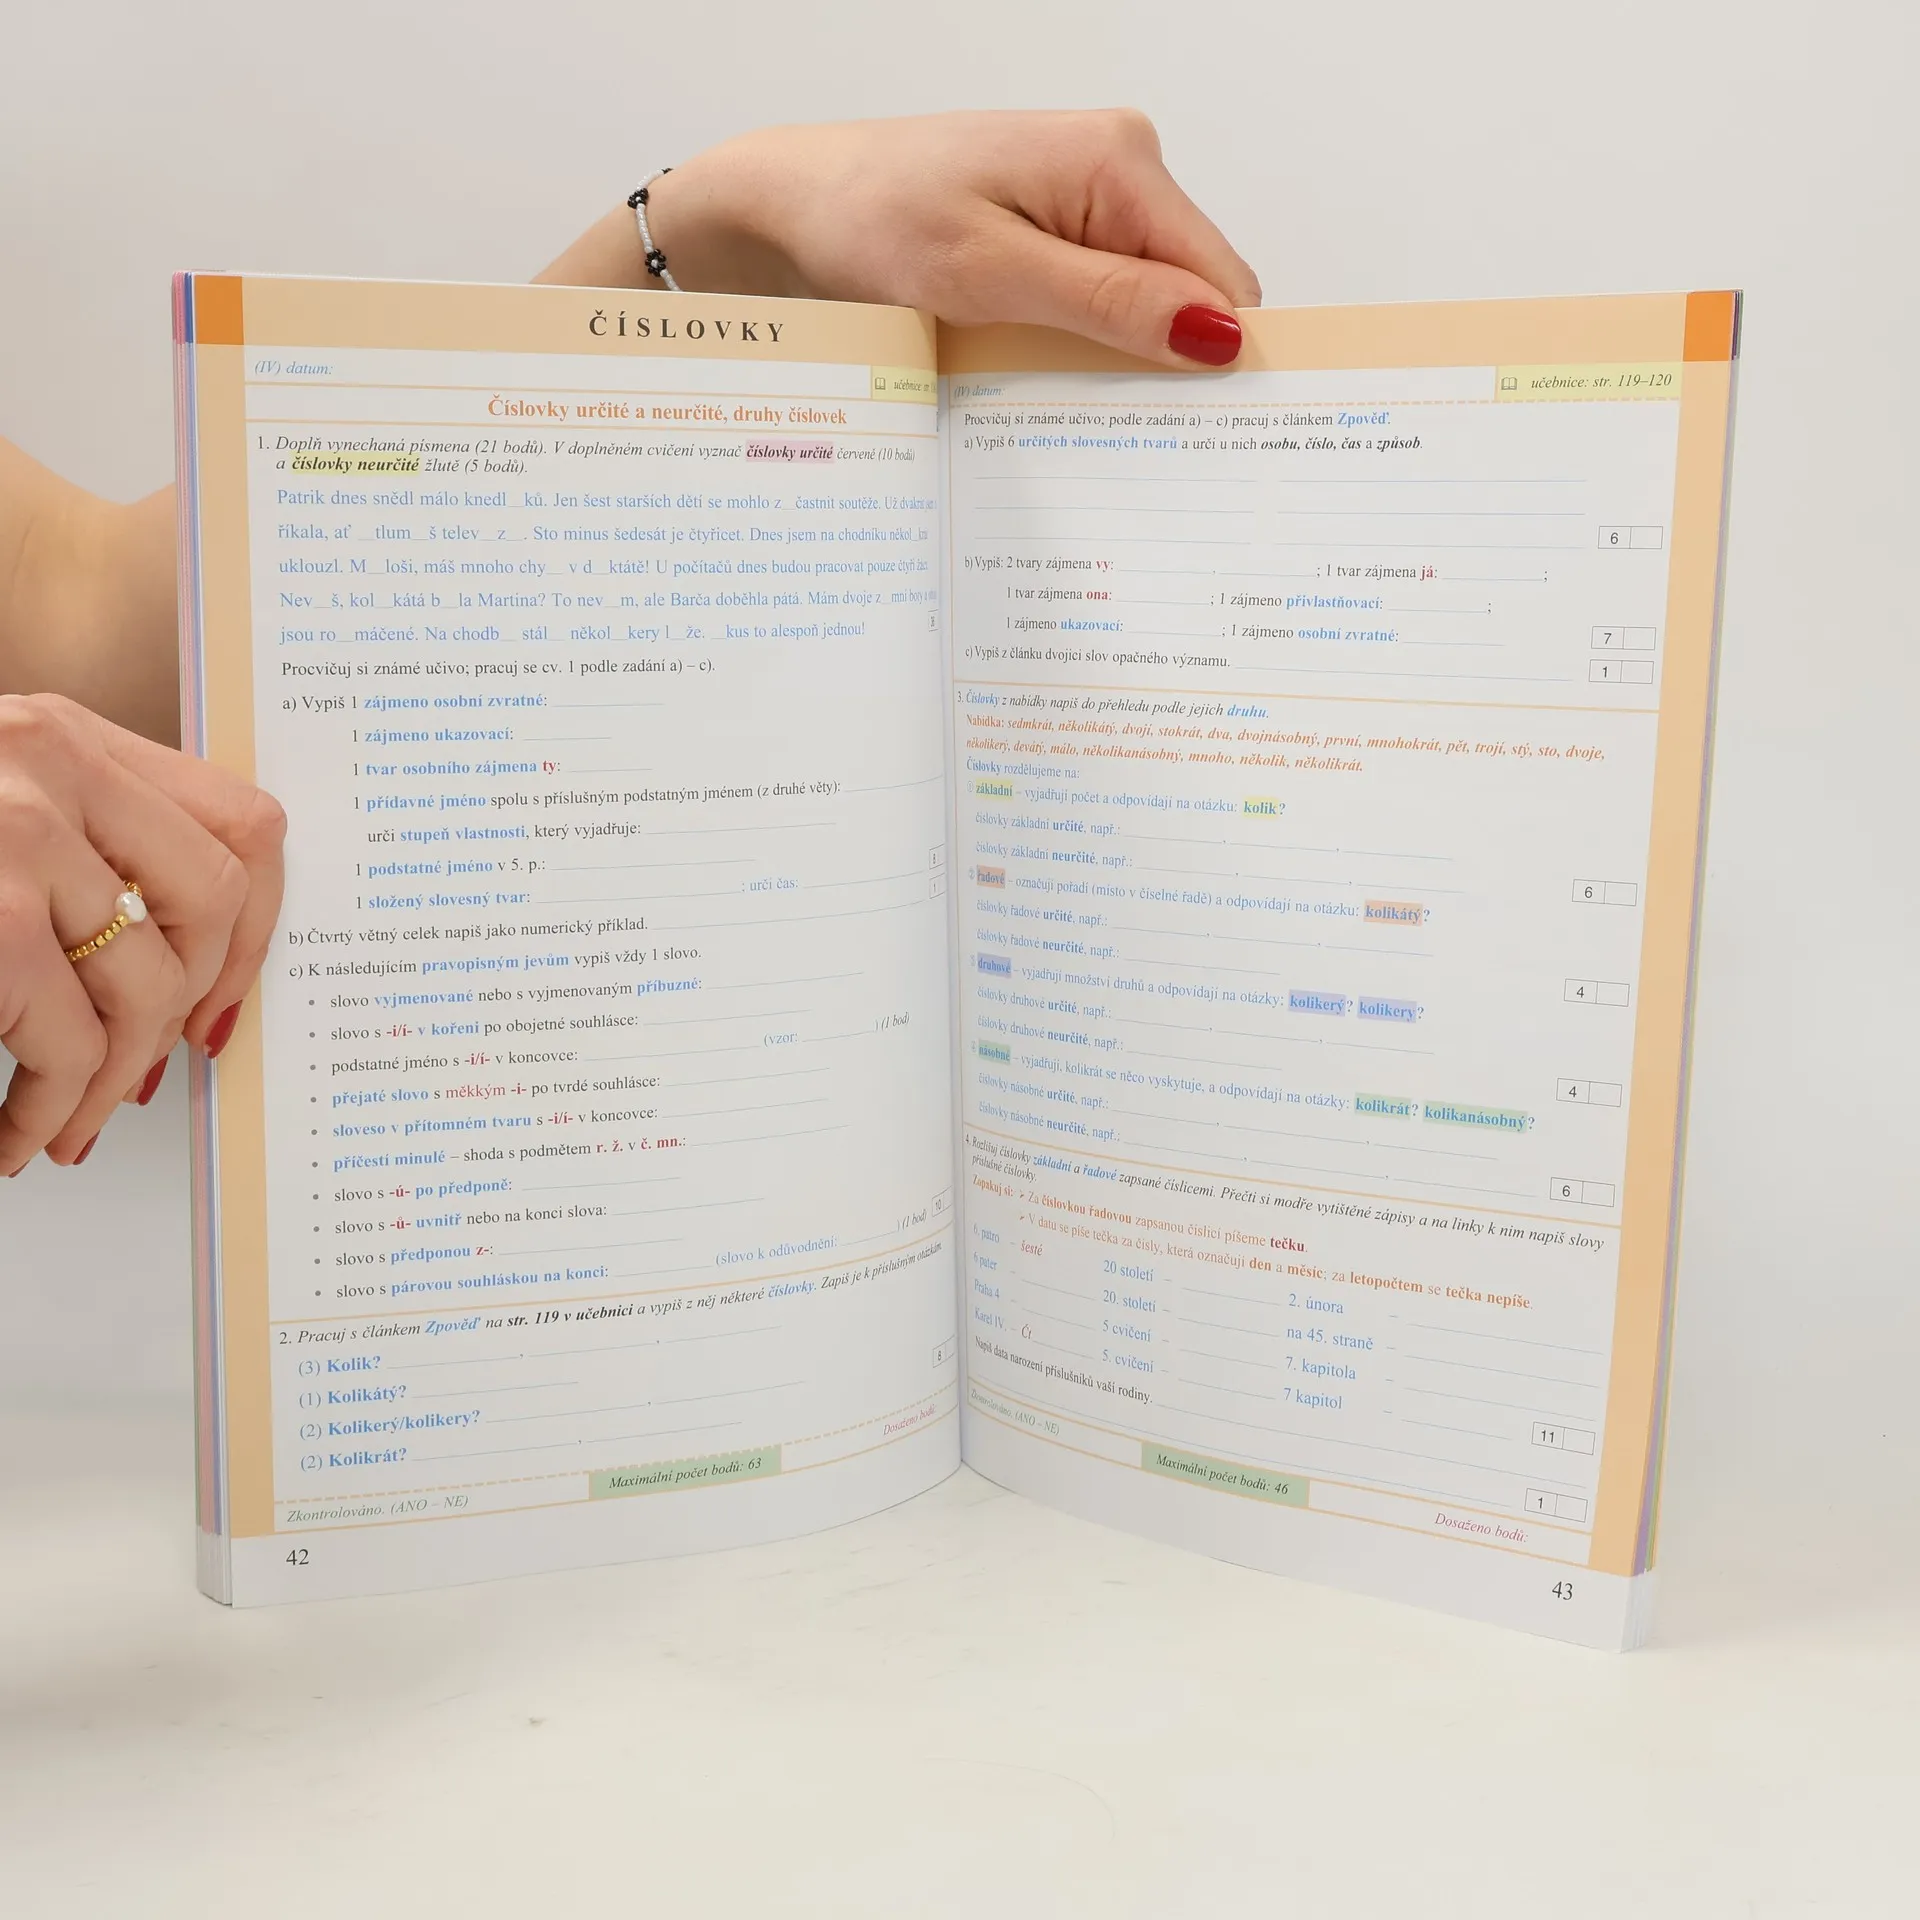 ČÍSLOVKY
(IV) datum:
učebnice: str.
Číslovky určité a neurčité, druhy číslovek
1. Doplň vynechaná písmena (21 bodů). V doplněném cvičení vyznač číslovky určité červeně (10 bodů)
a číslovky neurčité žlutě (5 bodů).
Patrik dnes snědl málo knedl__ků. Jen šest starších dětí se mohlo z__častnit soutěže. Už dvakrát
říkala, ať __tlum__š telev__z__. Sto minus šedesát je čtyřicet. Dnes jsem na chodníku několi__krát
uklouzl. M__loši, máš mnoho chy__ v d__ktátě! U počítačů dnes budou pracovat pouze čtyři žáci.
Nev__š, kol__kátá b__la Martina? To nev__m, ale Barča doběhla pátá. Mám dvoje z__mní boty a
jsou ro__máčené. Na chodb__ stál__ někol__kery l__že. __kus to alespoň jednou!
36
Procvičuj si známé učivo; pracuj se cv. 1 podle zadání a) – c).
a) Vypiš 1 zájmeno osobní zvratné:
1 zájmeno ukazovací:
1 tvar osobního zájmena ty:
1 přídavné jméno spolu s příslušným podstatným jménem (z druhé věty):
urči stupeň vlastnosti, který vyjadřuje:
1 podstatné jméno v 5. p.:
8
1 složený slovesný tvar: ; urči čas:
1
b) Čtvrtý větný celek napiš jako numerický příklad.
c) K následujícím pravopisným jevům vypiš vždy 1 slovo.
• slovo vyjmenované nebo s vyjmenovaným příbuzné:
• slovo s -i/í- v kořeni po obojetné souhlásce:
• podstatné jméno s -i/í- v koncovce: (vzor: ) (1 bod)
• přejaté slovo s měkkým -i- po tvrdé souhlásce:
• sloveso v přítomném tvaru s -i/í- v koncovce:
• příčestí minulé – shoda s podmětem r. ž. v č. mn.:
• slovo s -ú- po předponě:
• slovo s -ů- uvnitř nebo na konci slova:
• slovo s předponou z-:
• slovo s párovou souhláskou na konci: (slovo k odůvodnění: ) (1 bod)
10
2. Pracuj s článkem Zpověď na str. 119 v učebnici a vypiš z něj některé číslovky. Zapiš je k příslušným otázkám.
(3) Kolik? , ,
(1) Kolikátý?
(2) Kolikerý/kolikery? ,
(2) Kolikrát? ,
8
Zkontrolováno. (ANO – NE)
Maximální počet bodů: 63
Dosaženo bodů:
42
(IV) datum:
učebnice: str. 119–120
Procvičuj si známé učivo; podle zadání a) – c) pracuj s článkem Zpověď.
a) Vypiš 6 určitých slovesných tvarů a urči u nich osobu, číslo, čas a způsob.
6
b) Vypiš: 2 tvary zájmena vy: , ; 1 tvar zájmena já: ;
1 tvar zájmena ona: ; 1 zájmeno přivlastňovací: ;
1 zájmeno ukazovací: ; 1 zájmeno osobní zvratné:
7
c) Vypiš z článku dvojici slov opačného významu.
1
3. Číslovky z nabídky napiš do přehledu podle jejich druhu.
Nabídka: sedmkrát, několikátý, dvojí, stokrát, dva, dvojnásobný, první, mnohokrát, pět, trojí, stý, sto, dvoje,
několikerý, devátý, málo, několikanásobný, mnoho, několik, několikrát.
Číslovky rozdělujeme na:
① základní – vyjadřují počet a odpovídají na otázku: kolik?
číslovky základní určité, např.: , ,
číslovky základní neurčité, např.: , ,
6
② řadové – označují pořadí (místo v číselné řadě) a odpovídají na otázku: kolikátý?
číslovky řadové určité, např.: , ,
číslovky řadové neurčité, např.:
4
③ druhové – vyjadřují množství druhů a odpovídají na otázky: kolikerý? kolikery?
číslovky druhové určité, např.: , ,
číslovky druhové neurčité, např.:
4
④ násobné – vyjadřují, kolikrát se něco vyskytuje, a odpovídají na otázky: kolikrát? kolikanásobný?
číslovky násobné určité, např.: , ,
číslovky násobné neurčité, např.: , ,
6
4. Rozlišuj číslovky základní a řadové zapsané číslicemi. Přečti si modře vytištěné zápisy a na linky k nim napiš slovy
příslušné číslovky.
Zopakuj si: ➤ Za číslovkou řadovou zapsanou číslicí píšeme tečku.
➤ V datu se píše tečka za čísly, která označují den a měsíc; za letopočtem se tečka nepíše.
6. patro – šesté 20 století – 2. února –
6 pater – 20. století – na 45. straně –
Praha 4 – 5 cvičení – 7. kapitola –
Karel IV. – Čt 5. cvičení – 7 kapitol –
11
Napiš data narození příslušníků vaší rodiny.
1
Zkontrolováno. (ANO – NE)
Maximální počet bodů: 46
Dosaženo bodů:
43